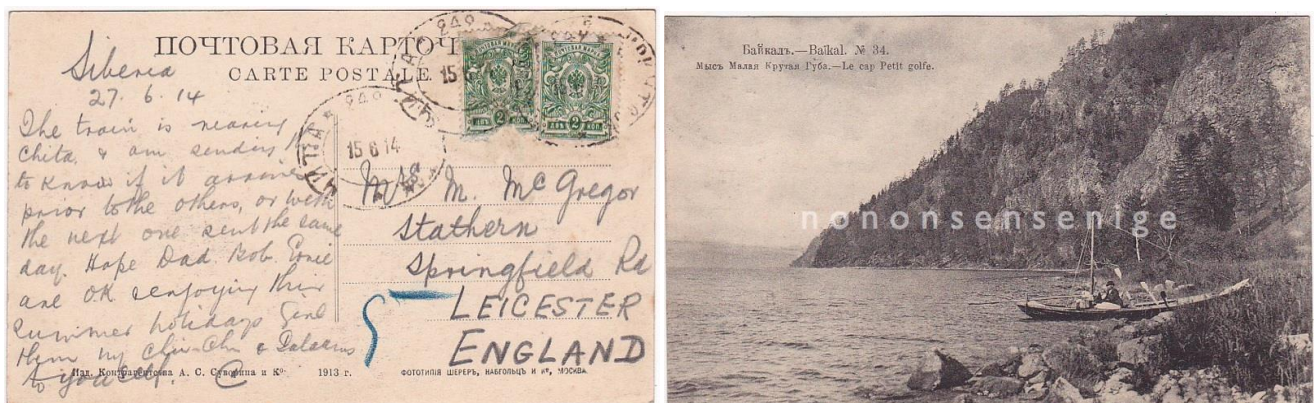 ПОЧТОВАЯ КАРТОЧ
CARTE POSTALE.
Siberia
27.6.14
The train is nearing
Chita, & am sending
to know if it arrives
prior to the others, or with
the next one sent the same
day. Hope Dad. Bob. Ernie
are OK enjoying their
summer holidays Give
them my Chin-Chin & Salaams
to you all. C
15 6 14
2 2
Mrs M. McGregor
Stathern
Springfield Rd
LEICESTER
ENGLAND
Изд. Контрагентства А. С. Суворина и Кº 1913 г.
ФОТОТИПІЯ ШЕРЕРЪ, НАБГОЛЬЦЪ И Кº, МОСКВА.
Байкалъ.—Baïkal. № 34.
Мысъ Малая Крутая Губа.—Le cap Petit golfe.
nononsensenige